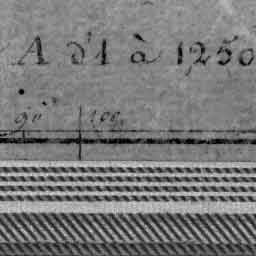 A d'1 à 1250
90 100